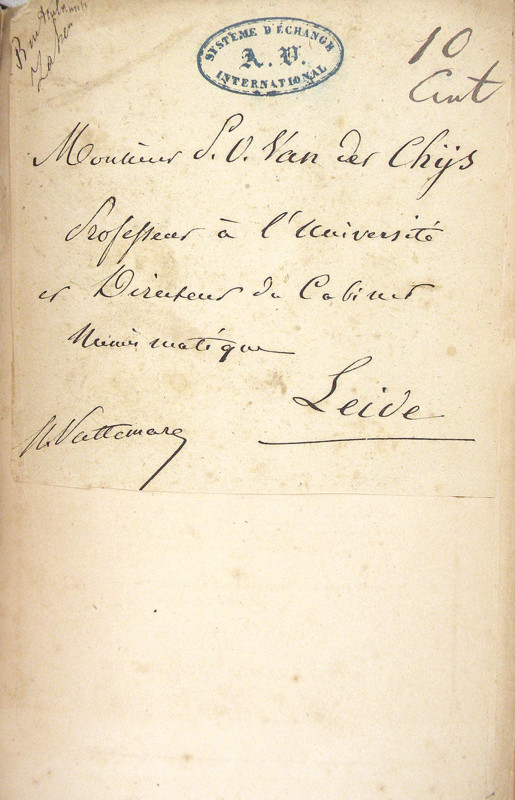 SYSTÈME D'ÉCHANGE
A. V.
INTERNATIONAL
10
Cent
Monsieur P. O. Van der Chijs
Professeur à l'Université
et Directeur du Cabinet
Numismatique
Leide
Vattemare